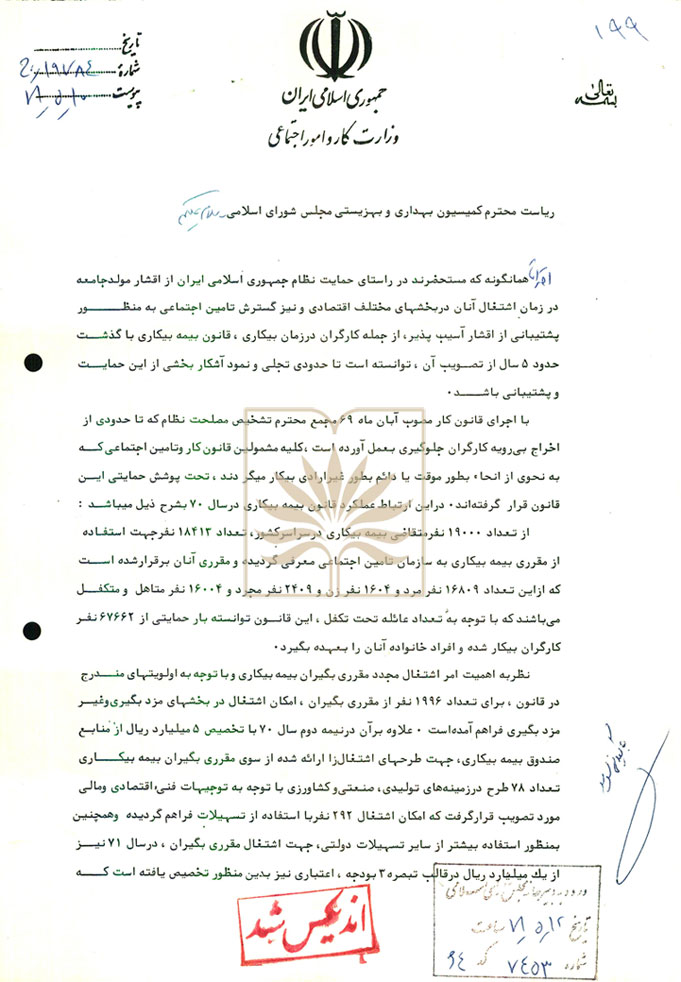 ۱۹۹
بسمه تعالی
جمهوری اسلامی ایران
وزارت کار و امور اجتماعی
تاریخ
شمارهٔ ۱۹۷۸۴
پیوست ۷۱/۵/۱۰
ریاست محترم کمیسیون بهداری و بهزیستی مجلس شورای اسلامی سلام علیکم
همانگونه که مستحضرند در راستای حمایت نظام جمهوری اسلامی ایران از اقشار مولدجامعه
در زمان اشتغال آنان دربخشهای مختلف اقتصادی و نیز گسترش تامین اجتماعی به منظـــور
پشتیبانی از اقشار آسیب پذیر، از جمله کارگران درزمان بیکاری ، قانون بیمه بیکاری با گذشت
حدود ۵ سال از تصویب آن ، توانسته است تا حدودی تجلی و نمود آشکار بخشی از این حمایت
و پشتیبانی باشــد۰
با اجرای قانون کار مصوب آبان ماه ۶۹ مجمع محترم تشخیص مصلحت نظام که تا حدودی از
اخراج بی‌رویه کارگران جلوگیری بعمل آورده است ،کلیه مشمولین قانون کار وتامین اجتماعی کــه
به نحوی از انحاء بطور موقت یا دائم بطور غیرارادی بیکار میگردند ، تحت پوشش حمایتی ایــن
قانون قرار گرفته‌اند۰ دراین ارتباط عملکرد قانون بیمه بیکاری درسال ۷۰ بشرح ذیل میباشد :
از تعداد ۱۹۰۰۰ نفرمتقاضی بیمه بیکاری درسراسرکشور، تعداد ۱۸۴۱۳ نفرجهت استفاده
از مقرری بیمه بیکاری به سازمان تامین اجتماعی معرفی گردیده و مقرری آنان برقرارشده است
که ازاین تعداد ۱۶۸۰۹ نفر مرد و ۱۶۰۴ نفر زن و ۲۴۰۹ نفر مجرد و ۱۶۰۰۴ نفر متاهل و متکفل
می‌باشند که با توجه به تعداد عائله تحت تکفل ، این قانـون توانسته بار حمایتی از ۶۷۶۶۲ نفـر
کارگران بیکار شده و افراد خانواده آنان را بعهده بگیرد۰
نظربه اهمیت امر اشتغال مجدد مقرری بگیران بیمه بیکاری و با توجه به اولویتهای منــدرج
در قانون ، برای تعداد ۱۹۹۶ نفر از مقرری بگیران ، امکان اشتغال در بخشهای مزد بگیری‌وغیر
مزد بگیری فراهم آمده‌است ۰ علاوه برآن درنیمه دوم سال ۷۰ با تخصیص ۵ میلیارد ریال از منابع
صندوق بیمه بیکاری، جهت طرحهای اشتغال‌زا ارائه شده از سوی مقرری بگیران بیمه بیکــاری
تعداد ۷۸ طرح درزمینه‌های تولیدی، صنعتی‌و کشاورزی با توجه به توجیهات فنی،اقتصادی ومالی
مورد تصویب قرارگرفت که امکان اشتغال ۲۹۲ نفربا استفاده از تسهیلات فراهم گردیده وهمچنین
بمنظور استفاده بیشتر از سایر تسهیلات دولتی، جهت اشتغال مقرری بگیران ، درسال ۷۱ نیــز
از یك میلیارد ریال درقالب تبصره ۳ بودجه ، اعتباری نیز بدین منظور تخصیص یافته است کــه
اندیکس شد
ورود به دبیرخانه مجلس شورای اسلامی
تاریخ ۷۱/۵/۱۲ ساعت
شماره ۷۴۵۳ کد ۹۴